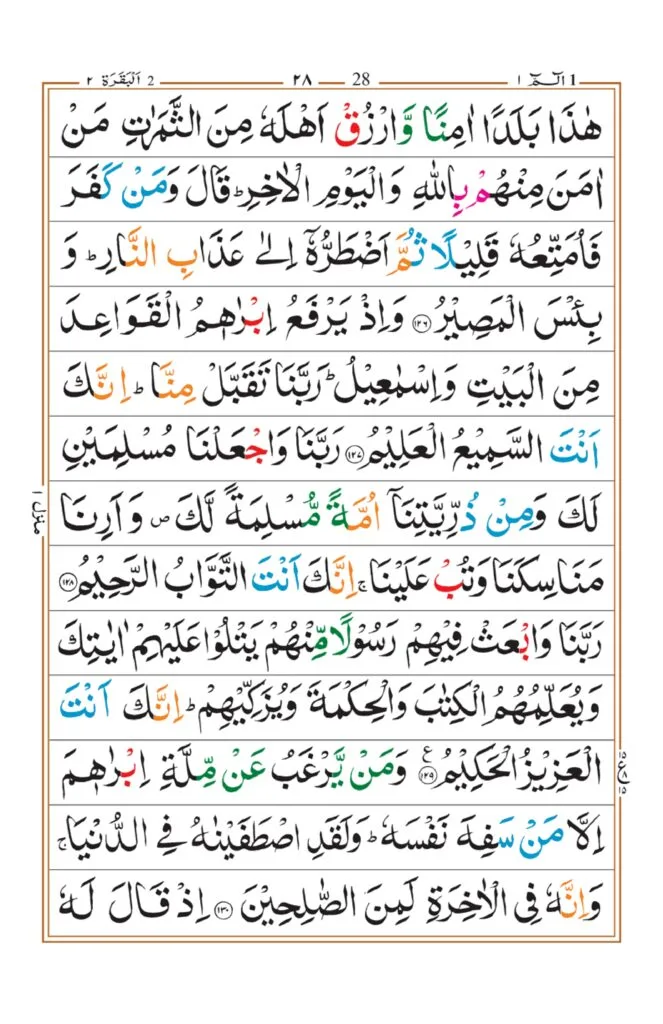 2 اَلْبَقَرَة ٢ 28 ٢٨ 1 الٓمّٓ ١
هٰذَا بَلَدًا اٰمِنًا وَّارْزُقْ اَهْلَهٗ مِنَ الثَّمَرٰتِ مَنْ
اٰمَنَ مِنْهُمْ بِاللّٰهِ وَالْيَوْمِ الْاٰخِرِ ؕ قَالَ وَمَنْ كَفَرَ
فَاُمَتِّعُهٗ قَلِيْلًا ثُمَّ اَضْطَرُّهٗۤ اِلٰى عَذَابِ النَّارِ ؕ وَ
بِئْسَ الْمَصِيْرُ ﴿۱۲۶﴾ وَاِذْ يَرْفَعُ اِبْرٰهٖمُ الْقَوَاعِدَ
مِنَ الْبَيْتِ وَاِسْمٰعِيْلُ ؕ رَبَّنَا تَقَبَّلْ مِنَّا ؕ اِنَّكَ
اَنْتَ السَّمِيْعُ الْعَلِيْمُ ﴿۱۲۷﴾ رَبَّنَا وَاجْعَلْنَا مُسْلِمَيْنِ
لَكَ وَمِنْ ذُرِّيَّتِنَاۤ اُمَّةً مُّسْلِمَةً لَّكَ ۪ وَاَرِنَا
مَنَاسِكَنَا وَتُبْ عَلَيْنَا ۚ اِنَّكَ اَنْتَ التَّوَّابُ الرَّحِيْمُ ﴿۱۲۸﴾
رَبَّنَا وَابْعَثْ فِيْهِمْ رَسُوْلًا مِّنْهُمْ يَتْلُوْا عَلَيْهِمْ اٰيٰتِكَ
وَيُعَلِّمُهُمُ الْكِتٰبَ وَالْحِكْمَةَ وَيُزَكِّيْهِمْ ؕ اِنَّكَ اَنْتَ
الْعَزِيْزُ الْحَكِيْمُ ﴿۱۲۹﴾ ع وَمَنْ يَّرْغَبُ عَنْ مِّلَّةِ اِبْرٰهٖمَ
اِلَّا مَنْ سَفِهَ نَفْسَهٗ ؕ وَلَقَدِ اصْطَفَيْنٰهُ فِى الدُّنْيَا ۚ
وَاِنَّهٗ فِى الْاٰخِرَةِ لَمِنَ الصّٰلِحِيْنَ ﴿۱۳۰﴾ اِذْ قَالَ لَهٗ
منزل ١